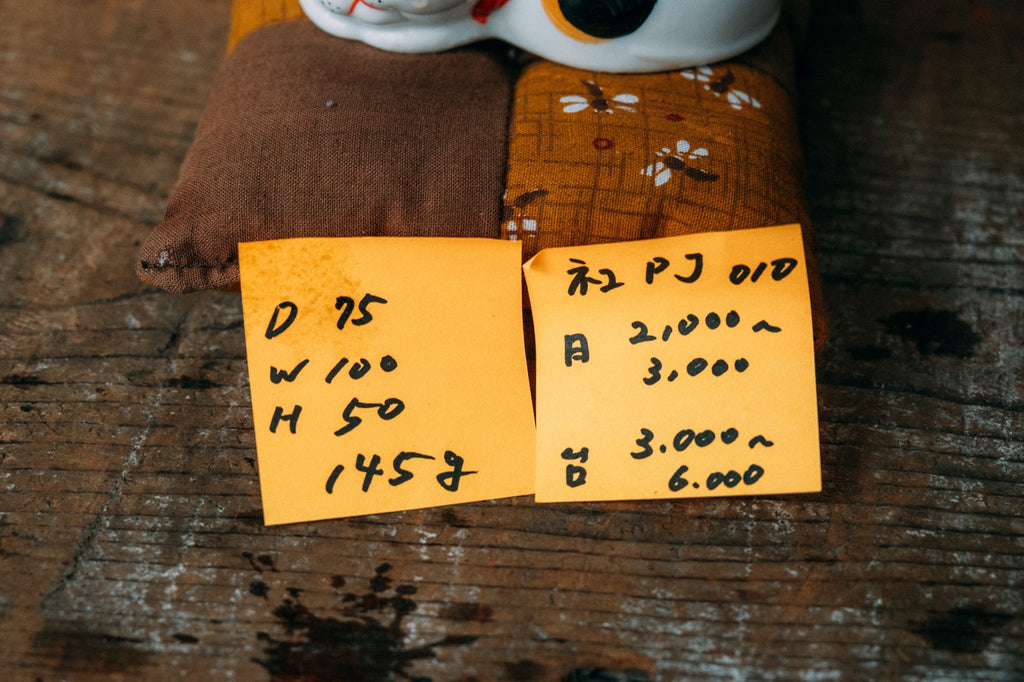 D 75
W 100
H 50
145g
社 PJ 010
日 2,000~
3,000
台 3.000~
6.000